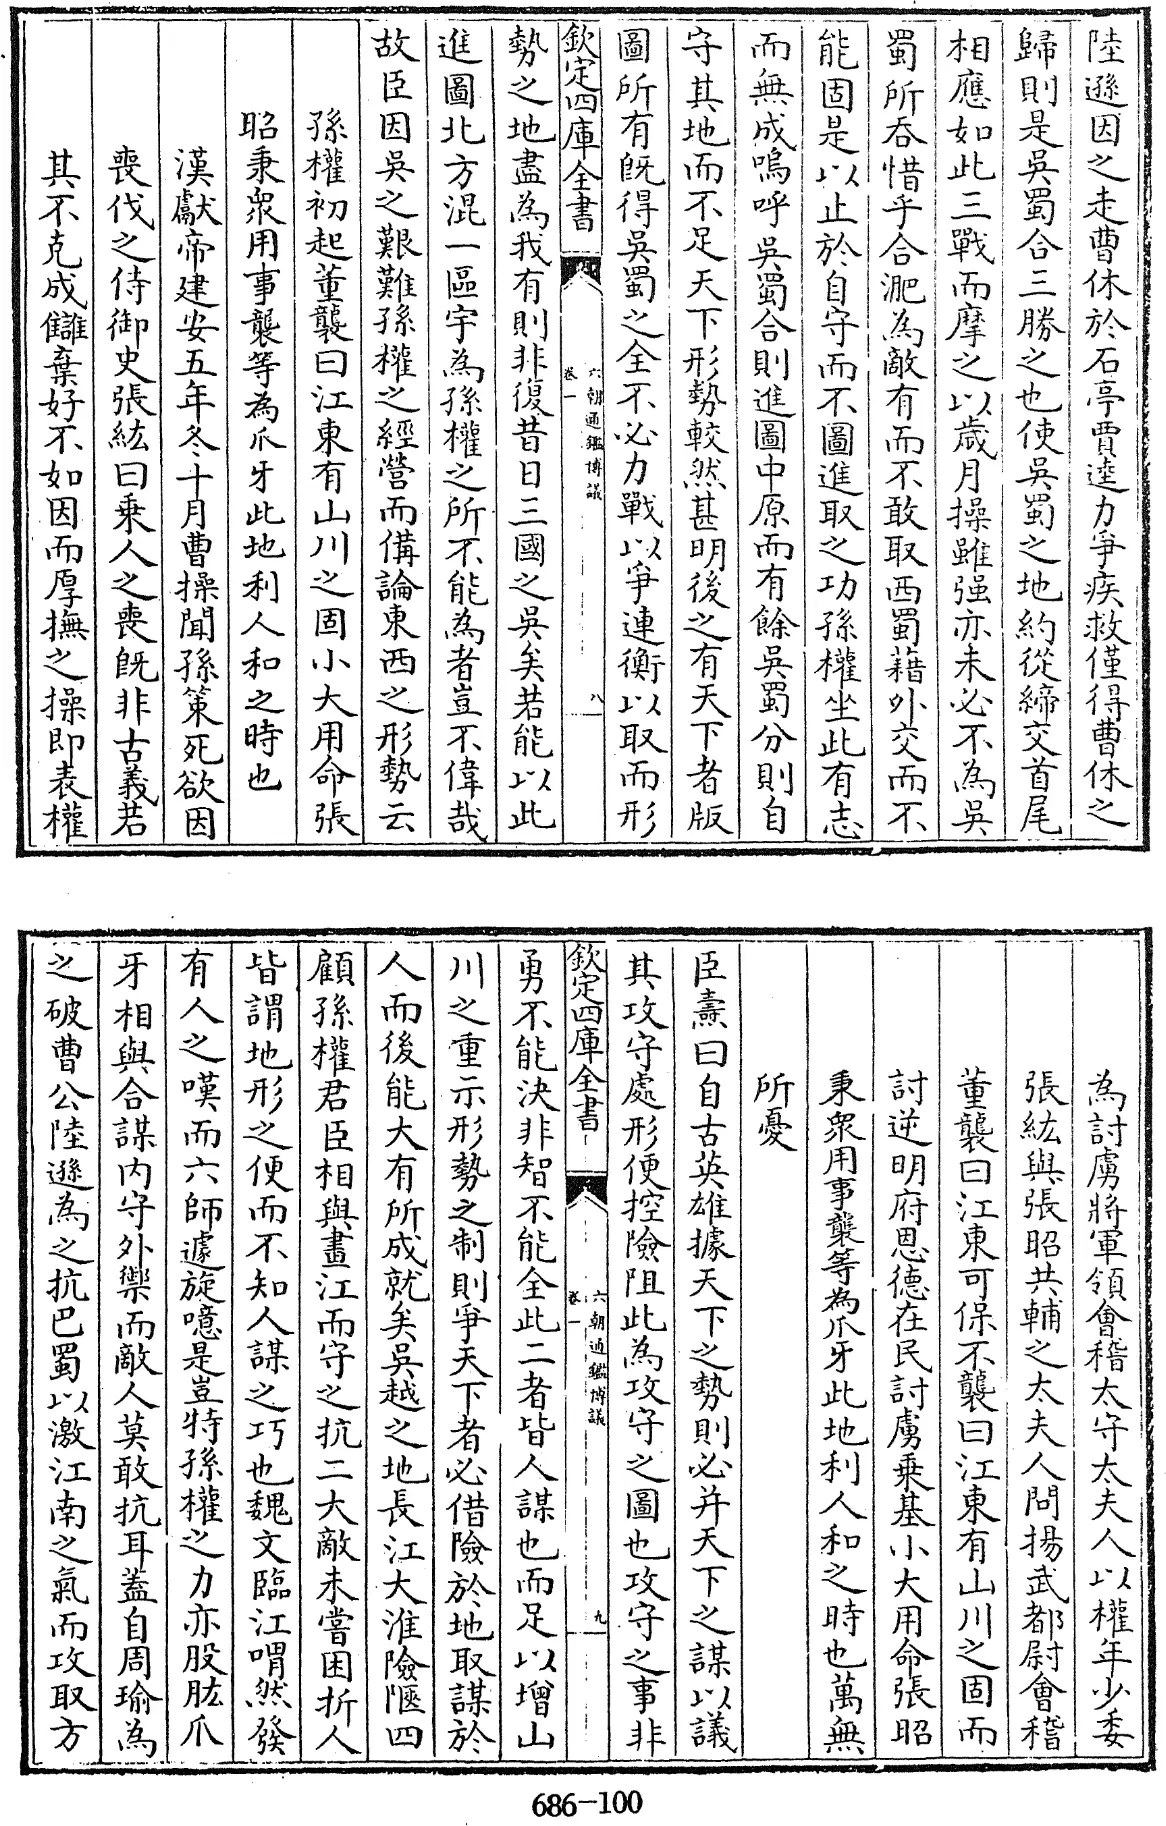 陸遜因之走曹休於石亭賈逵力爭疾救僅得曹休之
歸則是吳蜀合三勝之也使吳蜀之地約從締交首尾
相應如此三戰而摩之以歲月操雖强亦未必不為吳
蜀所吞惜乎合淝為敵有而不敢取西蜀藉外交而不
能固是以止於自守而不圖進取之功孫權坐此有志
而無成嗚呼吳蜀合則進圖中原而有餘吳蜀分則自
守其地而不足天下形勢較然甚明後之有天下者版
圖所有旣得吳蜀之全不必力戰以爭連衡以取而形
欽定四庫全書
六朝通鑑博議
卷一
八
勢之地盡為我有則非復昔日三國之吳矣若能以此
進圖北方混一區宇為孫權之所不能為者豈不偉哉
故臣因吳之艱難孫權之經營而備論東西之形勢云
孫權初起董襲曰江東有山川之固小大用命張
昭秉衆用事襲等為爪牙此地利人和之時也
漢獻帝建安五年冬十月曹操聞孫策死欲因
喪伐之侍御史張紘曰乘人之喪旣非古義若
其不克成讎棄好不如因而厚撫之操即表權
為討虜將軍領會稽太守太夫人以權年少委
張紘與張昭共輔之太夫人問揚武都尉會稽
董襲曰江東可保不襲曰江東有山川之固而
討逆明府恩德在民討虜乗基小大用命張昭
秉衆用事襲等為爪牙此地利人和之時也萬無
所憂
臣燾曰自古英雄據天下之勢則必并天下之謀以議
其攻守處形便控險阻此為攻守之圖也攻守之事非
欽定四庫全書
六朝通鑑博議
卷一
九
勇不能決非智不能全此二者皆人謀也而足以增山
川之重示形勢之制則爭天下者必借險於地取謀於
人而後能大有所成就矣吳越之地長江大淮險阨四
顧孫權君臣相與畫江而守之抗二大敵未嘗困折人
皆謂地形之便而不知人謀之巧也魏文臨江喟然發
有人之嘆而六師遽旋噫是豈特孫權之力亦股肱爪
牙相與合謀内守外禦而敵人莫敢抗耳蓋自周瑜為
之破曹公陸遜為之抗巴蜀以激江南之氣而攻取方
686-100